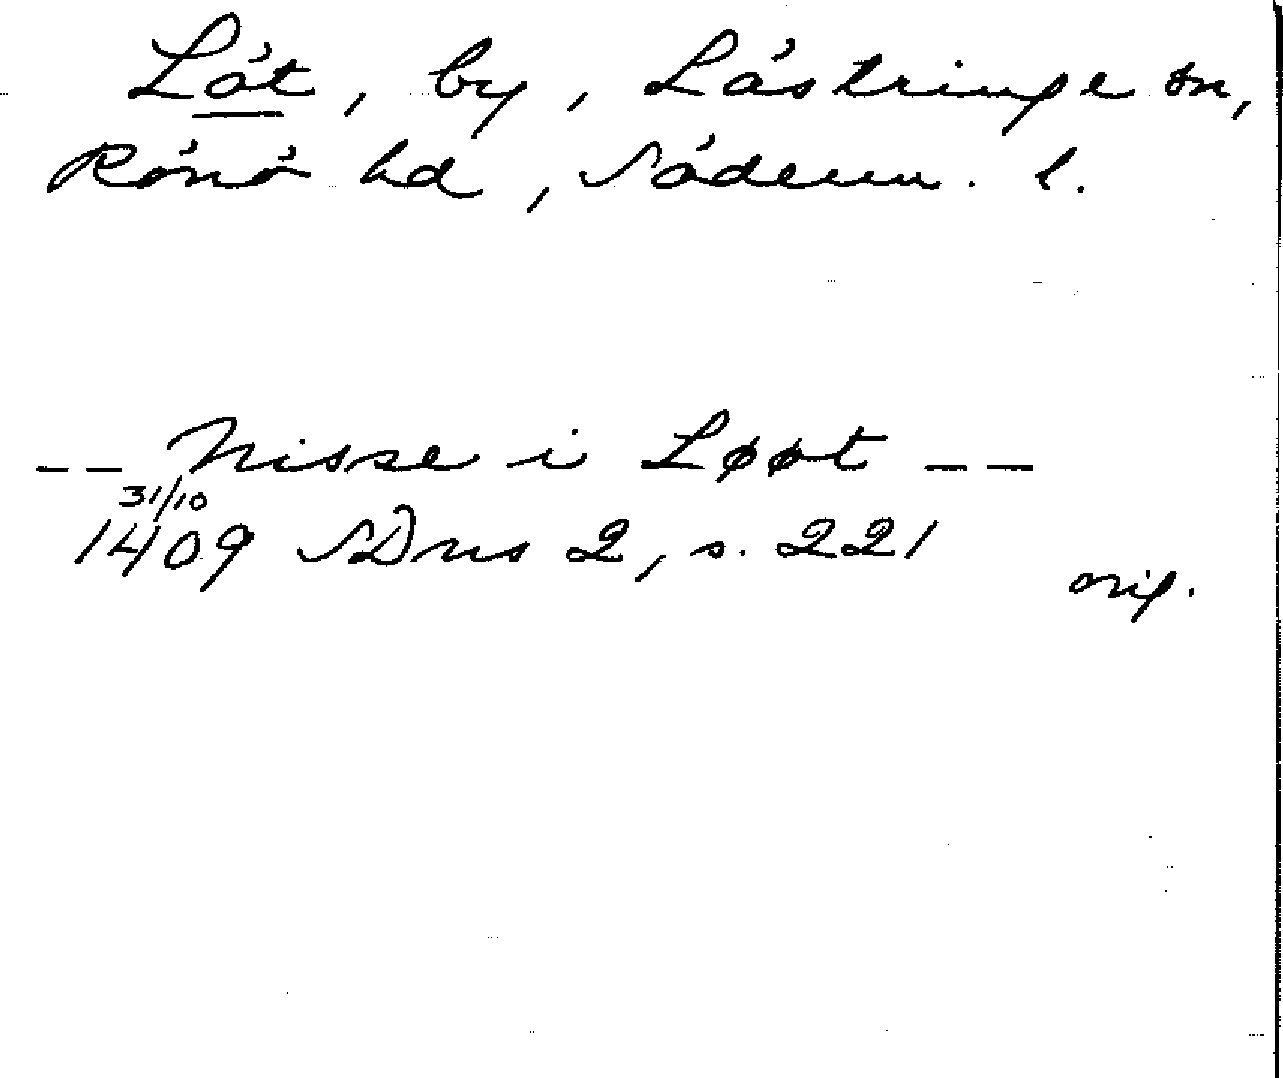 Löt, by, Lästringe sn,
Rönö hd, Söderm. l.
-- Nisse i Løøt --
31/10
1409 SDns 2, s. 221
orig.